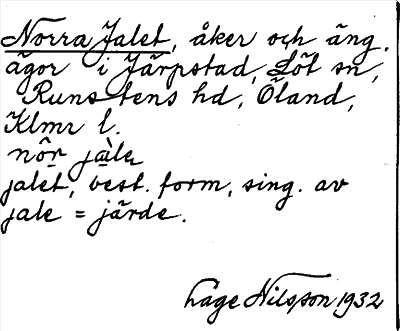 Norra Jalet, åker och äng.
ägor i Järpstad, Löt sn,
Runstens hd, Öland,
Klmr l.
nôr jàle
jalet, best. form, sing. av
jale = järde.
Hage Nilsson 1932